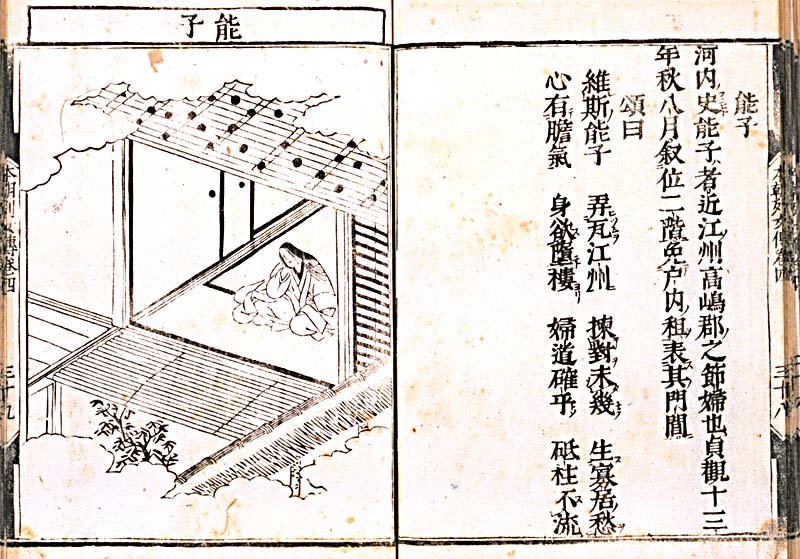 能子
河内史能子者近江州高嶋郡之節婦也貞觀十三
年秋八月叙位二階免户内租表其門閭
頌曰
維斯能子 弄瓦江州 揀對未幾 生寡居愁
心有膽氣 身欲墮樓 婦道確乎 砥柱不流
三十八
能子
本朝列女傳卷四
三十九